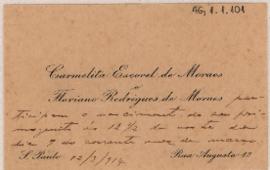 GG, 1. 1. 101
Carmelita Escorel de Moraes
e
Floriano Rodrigues de Moraes par-
ticipam o nascimento de seu primo-
genito às 12½ da noite do
dia 7 do corrente mez de março.
S. Paulo 12/3/914. Rua Augusta